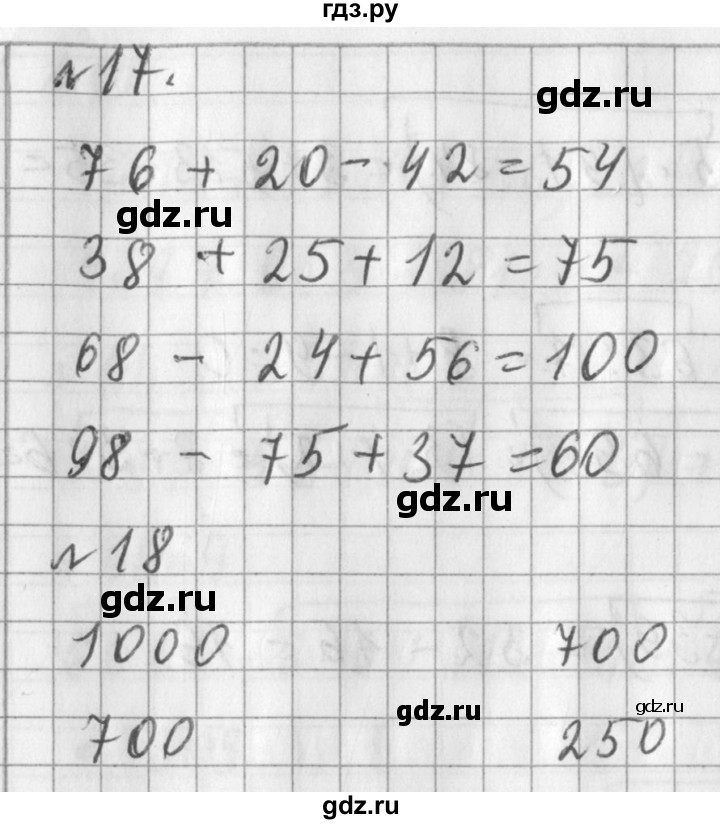 гдз.ру
№17.
gdz.ru
76 + 20 - 42 = 54
gdz.ru
38 + 25 + 12 = 75
68 - 24 + 56 = 100
98 - 75 + 37 = 60
gdz.ru
№18
gdz.ru
1000 700
gdz.ru gdz.ru
700 250
gdz.ru